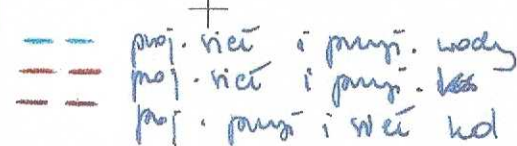 proj. sieć i przył. wody
proj. sieć i przył.
proj. przył i sieć kd